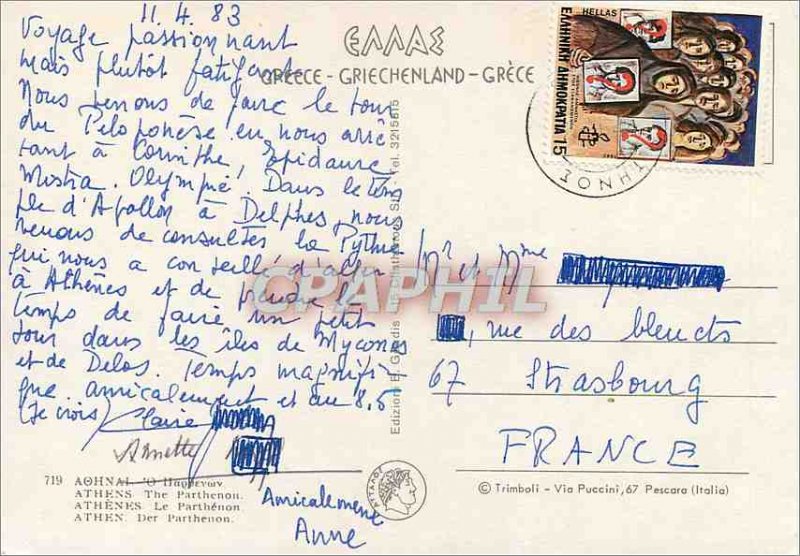 11.4.83
Voyage passionnant
mais plutôt fatigant
Nous venons de faire le tour
du Péloponèse en nous arrê
tant à Corinthe, Epidaure
Mistra. Olympie. Dans le tem
ple d'Apollon à Delphes, nous
venons de consulter la Pythie
qui nous a conseillé d'aller
à Athènes et de prendre le
temps de faire un petit
tour dans les îles de Myconos
et de Delos. Temps magnifi-
que. amicalement et au 8,5
(je crois) Claire
Annette
Amicalement
Anne
ΕΛΛΑΣ
GREECE - GRIECHENLAND - GRÈCE
HELLAS
ΕΛΛΗΝΙΚΗ ΔΗΜΟΚΡΑΤΙΑ 15
Mr et Mme
, rue des bleuets
67 Strasbourg
FRANCE
CPAPHIL
Tel. 3215515
719 ΑΘΗΝΑΙ. Ὁ Παρθενών.
ATHENS The Parthenon.
ATHÈNES. Le Parthénon.
ATHEN. Der Parthenon.
© Trimboli - Via Puccini, 67 Pescara (Italia)